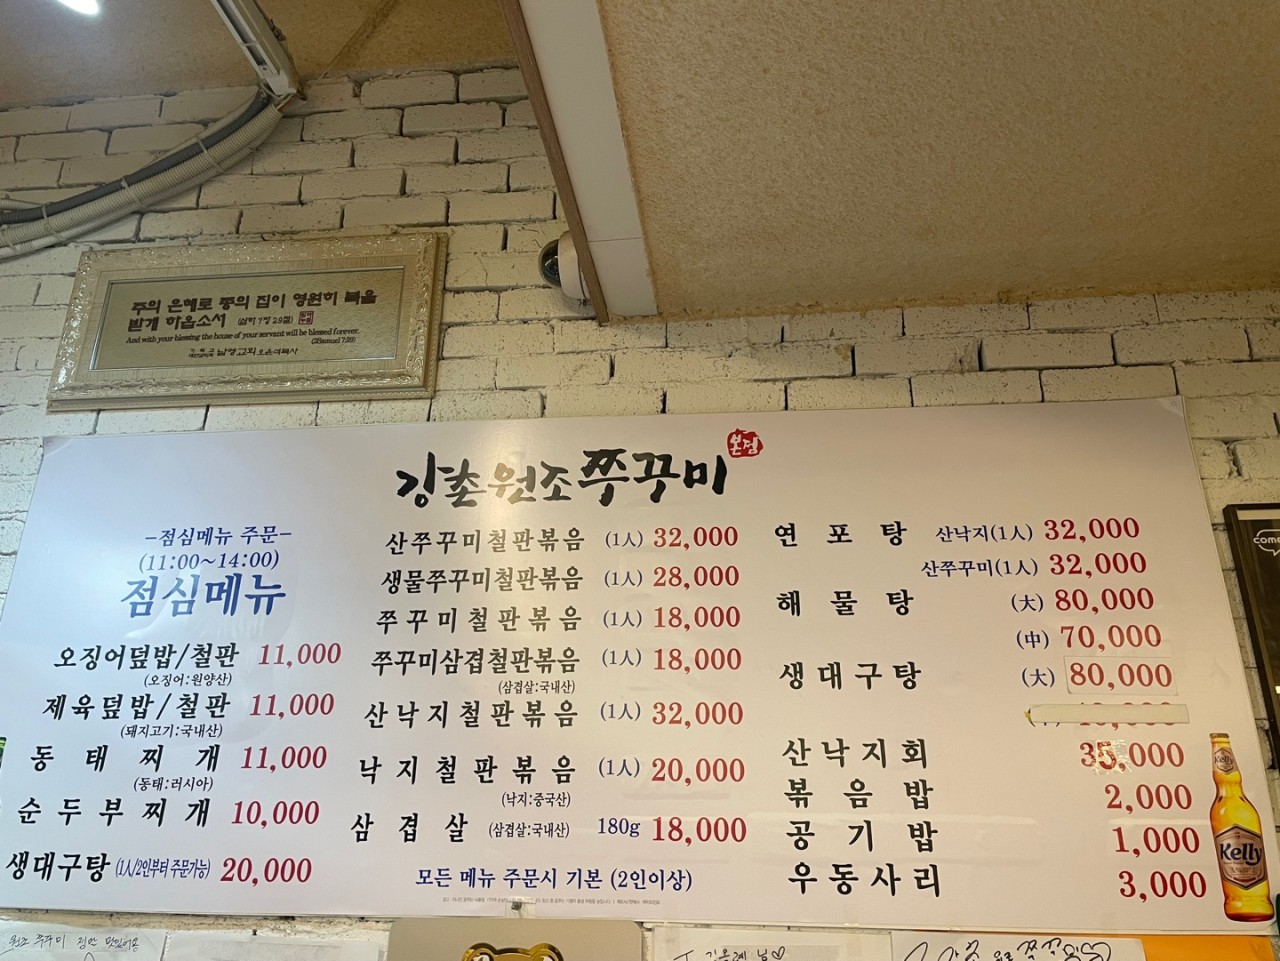 주의 은혜로 종의 집이 영원히 복을
받게 하옵소서 (삼하 7장 29절)
And with your blessing the house of your servant will be blessed forever.
(2Samuel 7:29)
강촌원조쭈꾸미 본점
-점심메뉴 주문-
(11:00~14:00)
점심메뉴
오징어덮밥/철판 11,000
(오징어:원양산)
제육덮밥/철판 11,000
(돼지고기:국내산)
동태찌개 11,000
(동태:러시아)
순두부찌개 10,000
생대구탕 (1人/2인부터 주문가능) 20,000
산쭈꾸미철판볶음 (1人) 32,000
생물쭈꾸미철판볶음 (1人) 28,000
쭈꾸미철판볶음 (1人) 18,000
쭈꾸미삼겹철판볶음 (1人) 18,000
(삼겹살:국내산)
산낙지철판볶음 (1人) 32,000
낙지철판볶음 (1人) 20,000
(낙지:중국산)
삼겹살 (삼겹살:국내산) 180g 18,000
모든 메뉴 주문시 기본 (2인이상)
연포탕 산낙지(1人) 32,000
산쭈꾸미(1人) 32,000
해물탕 (大) 80,000
(中) 70,000
생대구탕 (大) 80,000
산낙지회 35,000
볶음밥 2,000
공기밥 1,000
우동사리 3,000
Kelly
Kelly
원조 쭈꾸미 정말 맛있어용